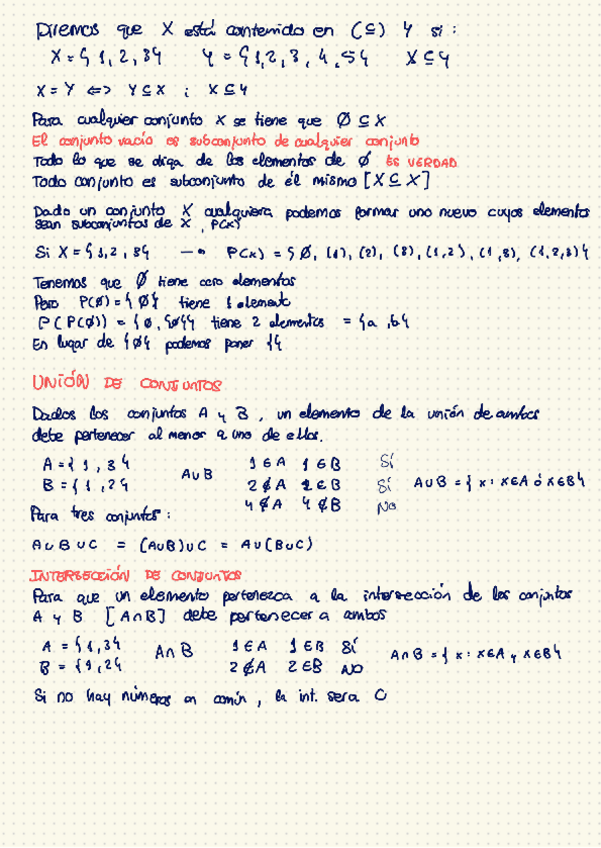 Diremos que X está contenido en (⊆) Y si:
X = {1, 2, 3} Y = {1, 2, 3, 4, 5} X ⊆ Y
X = Y ⟺ Y ⊆ X ; X ⊆ Y
Para cualquier conjunto X se tiene que Ø ⊆ X
El conjunto vacío es subconjunto de cualquier conjunto
Todo lo que se diga de los elementos de Ø ES VERDAD
Todo conjunto es subconjunto de él mismo [X ⊆ X]
Dado un conjunto X cualquiera podemos formar uno nuevo cuyos elementos
sean subconjuntos de X, P(X)
Si X = {1, 2, 3} → P(X) = {Ø, (1), (2), (3), (1,2), (1,3), (1,2,3)}
Tenemos que Ø tiene cero elementos
Pero P(Ø) = {Ø} tiene 1 elemento
P(P(Ø)) = {Ø, {Ø}} tiene 2 elementos = {a, b}
En lugar de {Ø} podemos poner {}
UNIÓN DE CONJUNTOS
Dados los conjuntos A y B, un elemento de la unión de ambos
debe pertenecer al menor a uno de ellos.
A = {1, 3} A∪B 1 ∈ A 1 ∈ B Sí
B = {1, 2} 2 ∉ A 2 ∈ B Sí A∪B = {x : x∈A ó x∈B}
4 ∉ A 4 ∉ B No
Para tres conjuntos:
A∪B∪C = (A∪B)∪C = A∪(B∪C)
INTERSECCIÓN DE CONJUNTOS
Para que un elemento pertenezca a la intersección de los conjuntos
A y B [A∩B] debe pertenecer a ambos
A = {1, 3} A∩B 1 ∈ A 1 ∈ B Sí A∩B = {x : x∈A y x∈B}
B = {1, 2} 2 ∉ A 2 ∈ B NO
Si no hay números en común, la int. sera O